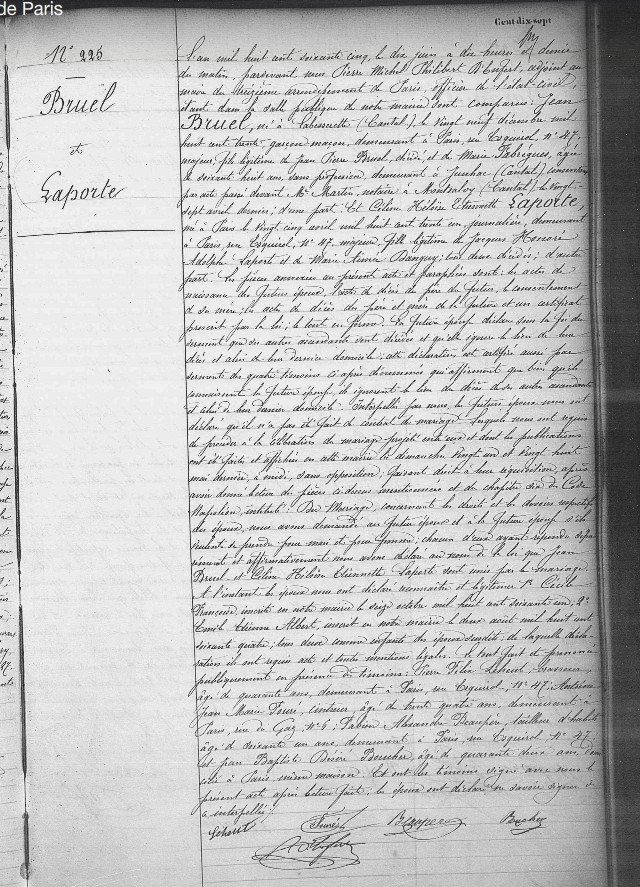 de Paris
Cent-dix-sept
N° 225
Bruel
et
Laporte
L'an mil huit cent soixante cinq, le dix juin à dix heures et demie
du matin, pardevant nous Pierre Michel Philibert adjoint au
maire du treizième arrondissement de Paris, officier de l'état civil,
étant dans la salle publique de notre mairie sont comparus: Jean
Bruel, né à (Cantal), le vingt neuf décembre mil
huit cent trente, garçon maçon, demeurant à Paris, rue Esquirol, N° 47,
majeur, fils légitime de Jean Pierre Bruel, décédé, et de Marie Fabrègues, âgée
de soixante huit ans, sans profession, demeurant à Junhac (Cantal) consentante
par acte passé devant Me Martin, notaire à Montsalvy (Cantal) le vingt-
sept avril dernier; d'une part. Et Céline Hélène Etiennette Laporte,
née à Paris le vingt cinq avril mil huit cent trente un, journalière, demeurant
à Paris rue Esquirol, N° 47, majeure, fille légitime de Jacques Honoré
Adolphe Laporte et de Marie Aimée tous deux décédés; d'autre
part. Les pièces annexées au présent acte et paraphées sont: les actes de
naissance des futurs époux, l'acte de décès du père du futur, le consentement
de sa mère; les actes de décès des père et mère de la future et un certificat
prescrit par la loi; le tout en forme. La future épouse déclare sous la foi du
serment que ses autres ascendants sont décédés et qu'elle ignore le lieu de leur
décès et celui de leur dernier domicile; cette déclaration est certifiée aussi par
serment des quatre témoins ci après dénommés qui affirment que bien qu'ils
connaissent la future épouse, ils ignorent le lieu du décès de ses autres ascendants
et celui de leur dernier domicile. Interpellés par nous, les futurs époux nous ont
déclaré qu'il n'a pas été fait de contrat de mariage. Lesquels nous ont requis
de procéder à la célébration du mariage projeté entre eux et dont les publications
ont été faites et affichées en cette mairie les dimanches vingt un et vingt huit
mai dernier, à midi, sans opposition. Faisant droit à leur réquisition, après
avoir donné lecture des pièces ci-dessus mentionnées et du chapitre six du Code
Napoléon, intitulé: Du Mariage, concernant les droits et les devoirs respectifs
des époux, nous avons demandé au futur époux et à la future épouse s'ils
veulent se prendre pour mari et pour femme; chacun d'eux ayant répondu séparé-
ment et affirmativement nous avons déclaré au nom de la loi que Jean
Bruel et Céline Hélène Etiennette Laporte sont unis par le mariage.
A l'instant les époux nous ont déclaré reconnaître et légitimer 1° Cécile
Françoise, inscrite en notre mairie le seize octobre mil huit cent soixante un, 2°
Emile Etienne Albert, inscrit en notre mairie le deux août mil huit cent
soixante quatre; tous deux comme enfants des époux susdits; de laquelle décla-
ration ils ont requis acte et toutes mentions légales. Le tout fait et prononcé
publiquement en présence de témoins: Pierre Félix
âgé de quarante ans, demeurant à Paris, rue Esquirol, N° 47, Antoine
Jean Marie âgé de trente quatre ans, demeurant à
Paris, rue du Gaz, N° 6; Fabien Alexandre Beaupère, tailleur d'habits
âgé de soixante un ans demeurant à Paris, rue Esquirol N° 47
et Jean Baptiste Désiré Boucher, âgé de quarante deux ans domi-
cilié à Paris même maison. Et ont les témoins signé avec nous le
présent acte après lecture faite, les époux ont déclaré ne savoir signer de
ce interpellés.